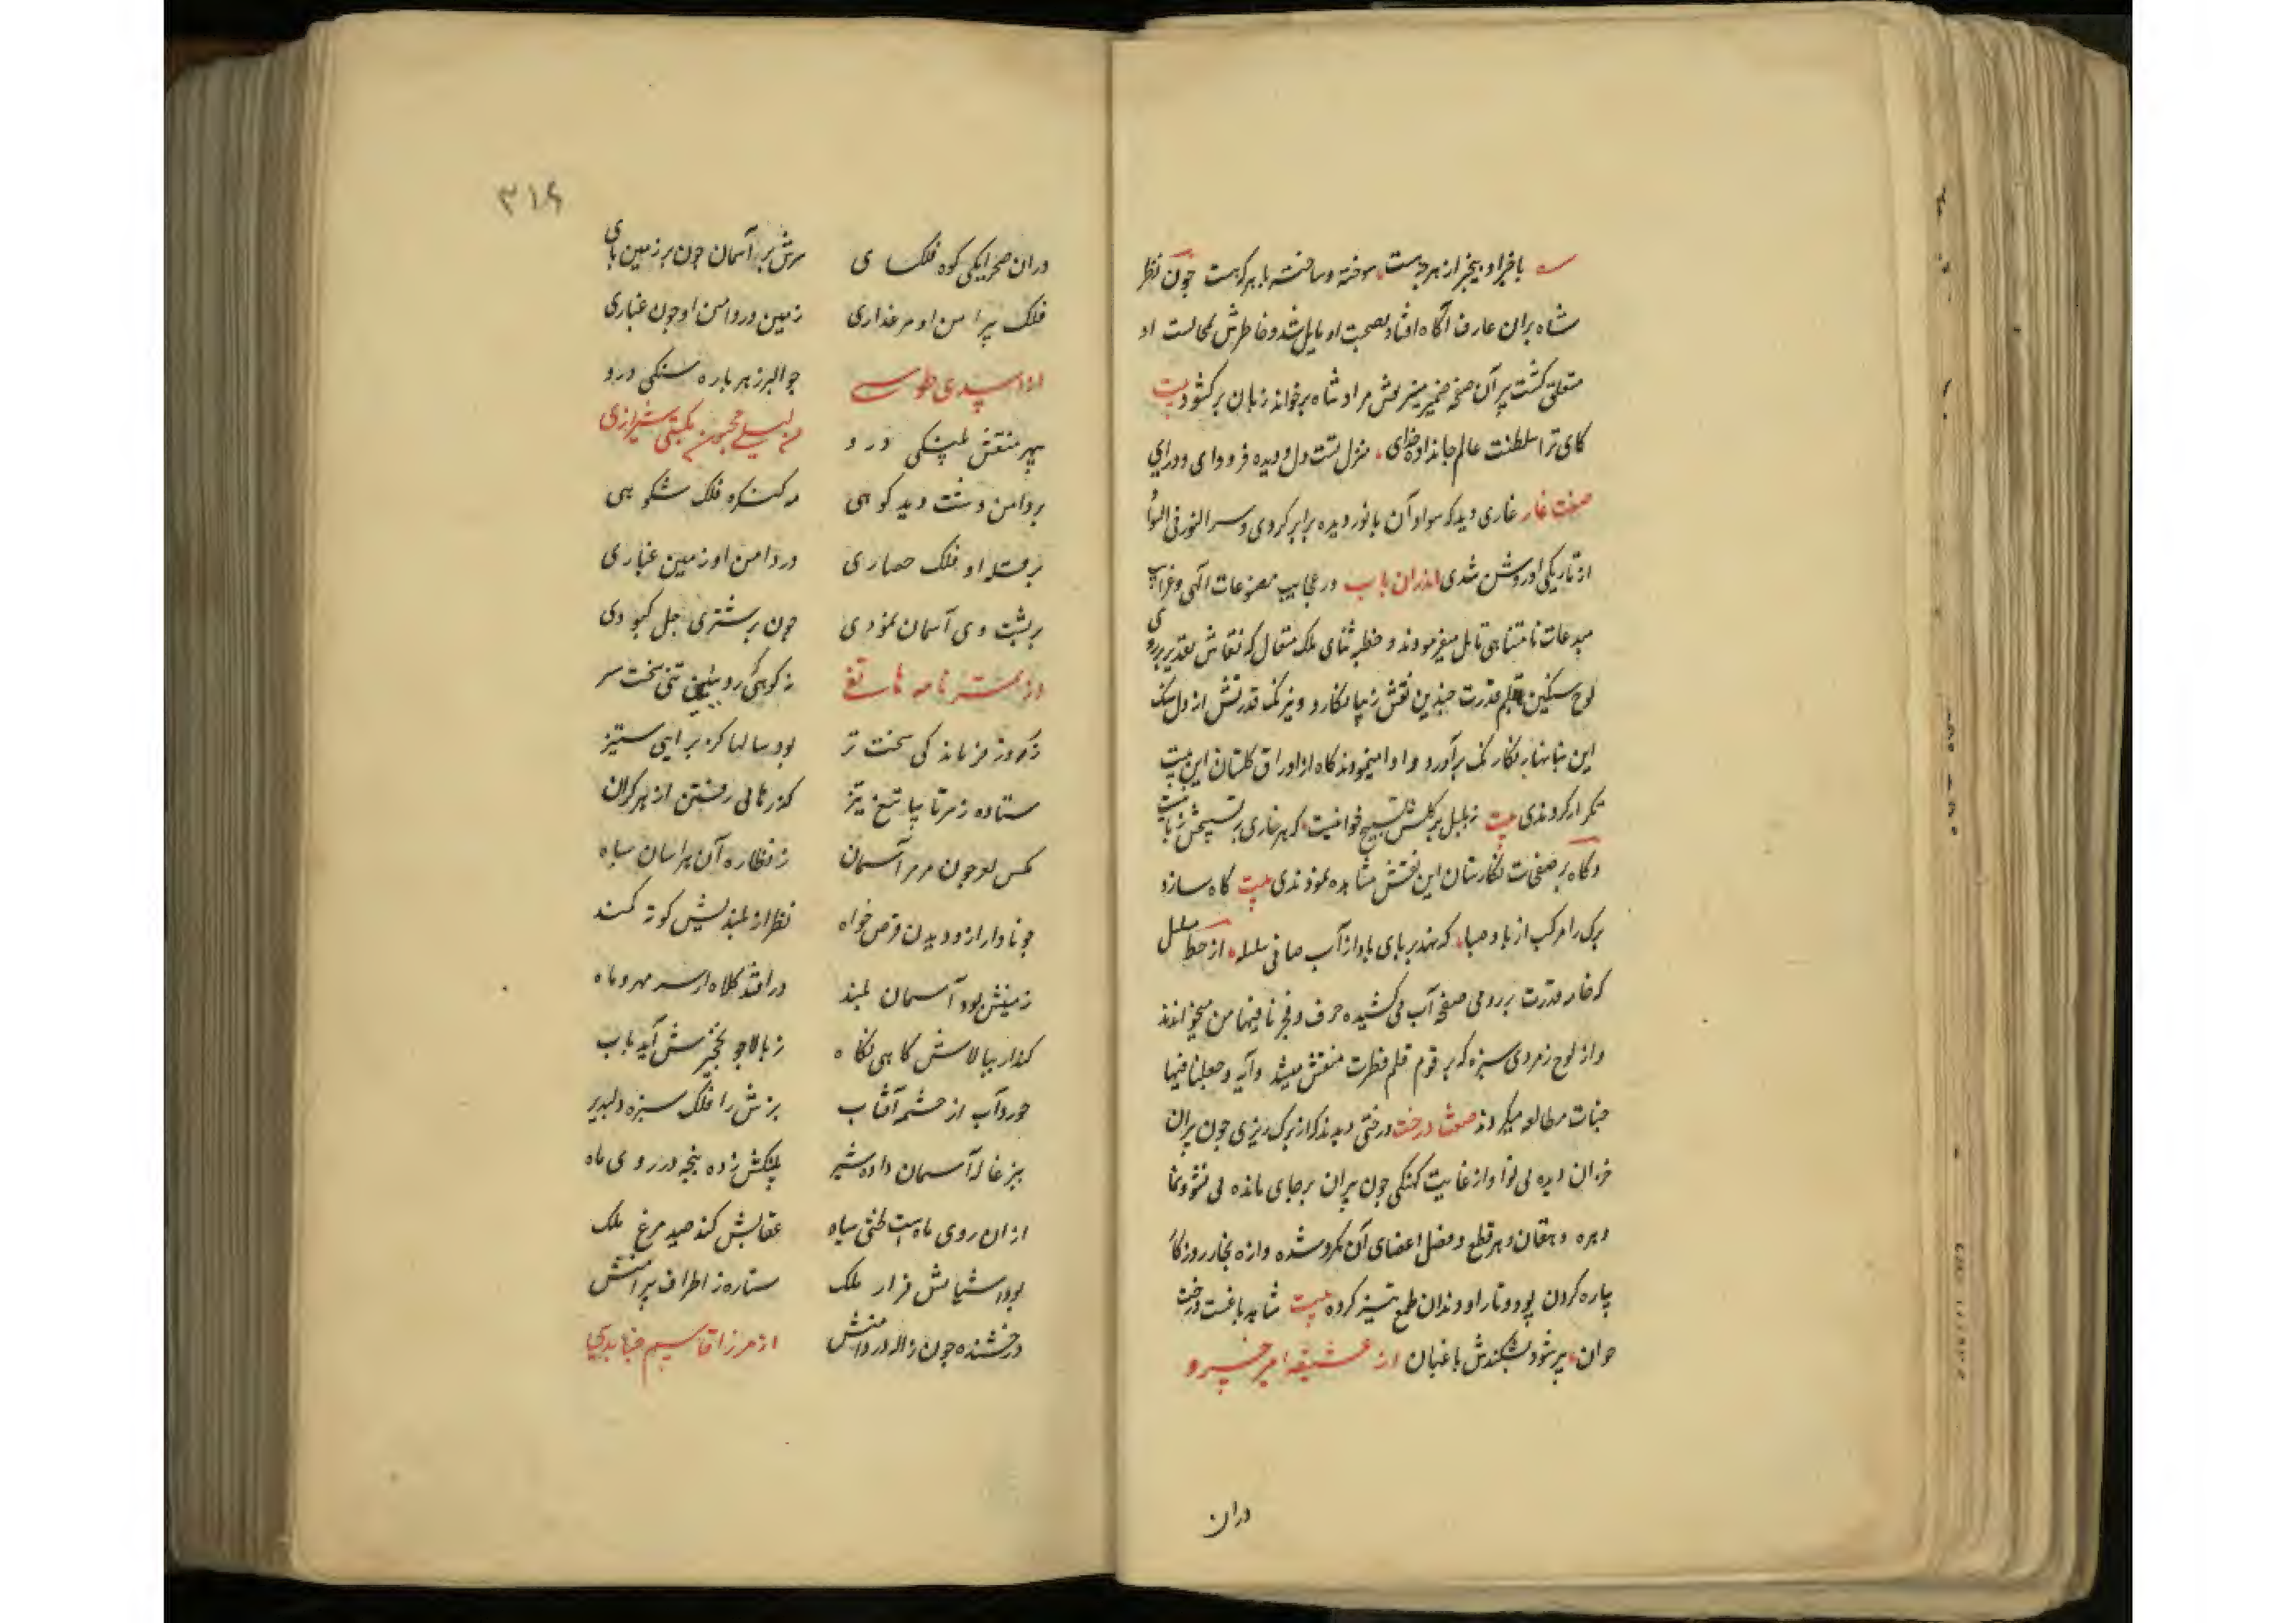 باخبر او بیخبر از هرچه هست سوخته و ساخته با هر که هست چون نظر
شاه بران عارف آگاه افتاد بصحبت او مایل شد و خاطرش بمجالست او
متعلق کشت پیر آن صفحه ضمیر منیرش مراد شاه برخواند زبان برکشود بیت
کای ترا سلطنت عالم جانداد خدای منزل تست دل و دیده فرود ای و درای
صفت غار غاری دید که سواد آن با نور دیده برابر کردی و سر النور فی السواد
از تاریکی او روشن شدی اندران باب در عجایب مصنوعات الهی و غرایب
مبدعات نامتناهی تامل میفرمودند و خطبه ثنای ملک متعال که نقاش تقدیر بر روی
لوح سنکین بقلم قدرت چندین نقش زیبا نکارد و نیرنک قدرتش از دل سنک
این بتا بنکار برآورد ادا مینمودند کاه از اوراق کلستان این بیت
تکرار کردندی بیت نه بلبل بر کلش تسبیح خوانیست که هر خاری به تسبیحش زبانیست
و کاه بر صفحات نکارستان این نقش مشاهده نمودندی بیت کاه سازد
برک را مرکب از باد صبا که نهد بر پای باد از آب صافی سلسله از خط سلسل
که خامه قدرت بر روی صفحه آب می کشیده حرف و فجرنا فیها من میخواندند
و از لوح زمردی سبزه که برقوم قلم فطرت منقش میشد آیه و جعلنا فیها
جنات مطالعه میکردند صفت درخت درختی دیدند که از برک ریزی چون پیران
خزان دیده بی نوا و از غایت کهنکی چون پیران برجای مانده بی نشو و نما
دهره دهقان در قطع و فصل اعضای آن کرد شده و اره نجار روزکار
پاره کردن پود و تار او دندان طمع تیز کرده بیت شاهد باغست درخت
جوان پیر شود بشکندش باغبان از عشیقه امیر خسرو
دران
۳۱۶
دران صحرا یکی کوه فلک سای سرش بر آسمان چون بر زمین پای
فلک پیرامن او مرغزاری زمین در دامن او چون غباری
از اسدی طوسی چو البرز هر پاره سنکی درو
سپهر منقش پلنکی درو من لیلی مجنون مکتبی شیرازی
بر دامن دشت دید کوهی در کنکره فلک شکوهی
بر قله او فلک حصاری در دامن او زمین غباری
بر پشت وی آسمان نمودی چون بر شتری جل کبودی
من تمرنامه هاتفی نه کوهی که رویین تنی سخت سر
ز دور زمانه کی سخت تر بود سالها کز برای ستیز
ستاده ز سر تا بپا تیغ تیز کذرهای رفتن از هر کران
کس بود چون مر مر آسمان ز نظاره آن هراسان سپاه
چو نادار از دیدن قرض خواه نظر از بلندیش کوته کمند
زمینش بود آسمان بلند در افتد کلاه از سر مهر و ماه
کذار ببالاش کاهی نکاه ز بالا چو نخجیرش آید بآب
خورد آب از چشمه آفتاب بزش را فلک سبزه دلپذیر
ببزغاله آسمان داده شیر پلنکش زده پنجه در روی ماه
ازان روی ماهست لختی سیاه عقابش کند صید مرغ ملک
بود آشیانش فراز ملک ستاره ز اطراف پیرامنش
درخشنده چون ژاله در دامنش از میرزا قاسم جنابدی